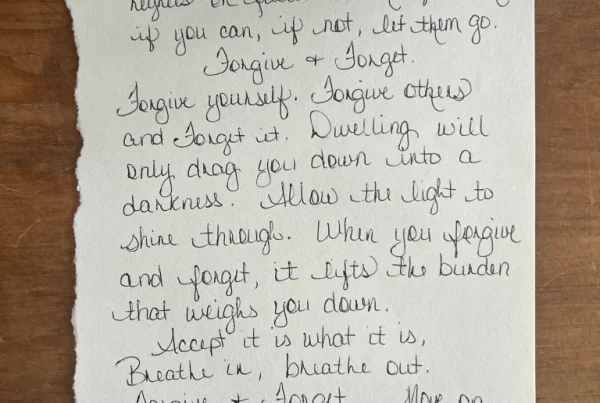 if you can, if not, let them go.
Forgive & Forget.
Forgive yourself. Forgive others
and Forget it. Dwelling will
only drag you down into a
darkness. Allow the light to
shine through. When you forgive
and forget, it lifts the burden
that weighs you down.
Accept it is what it is,
Breathe in, breathe out.
Forgive & Forget Move on